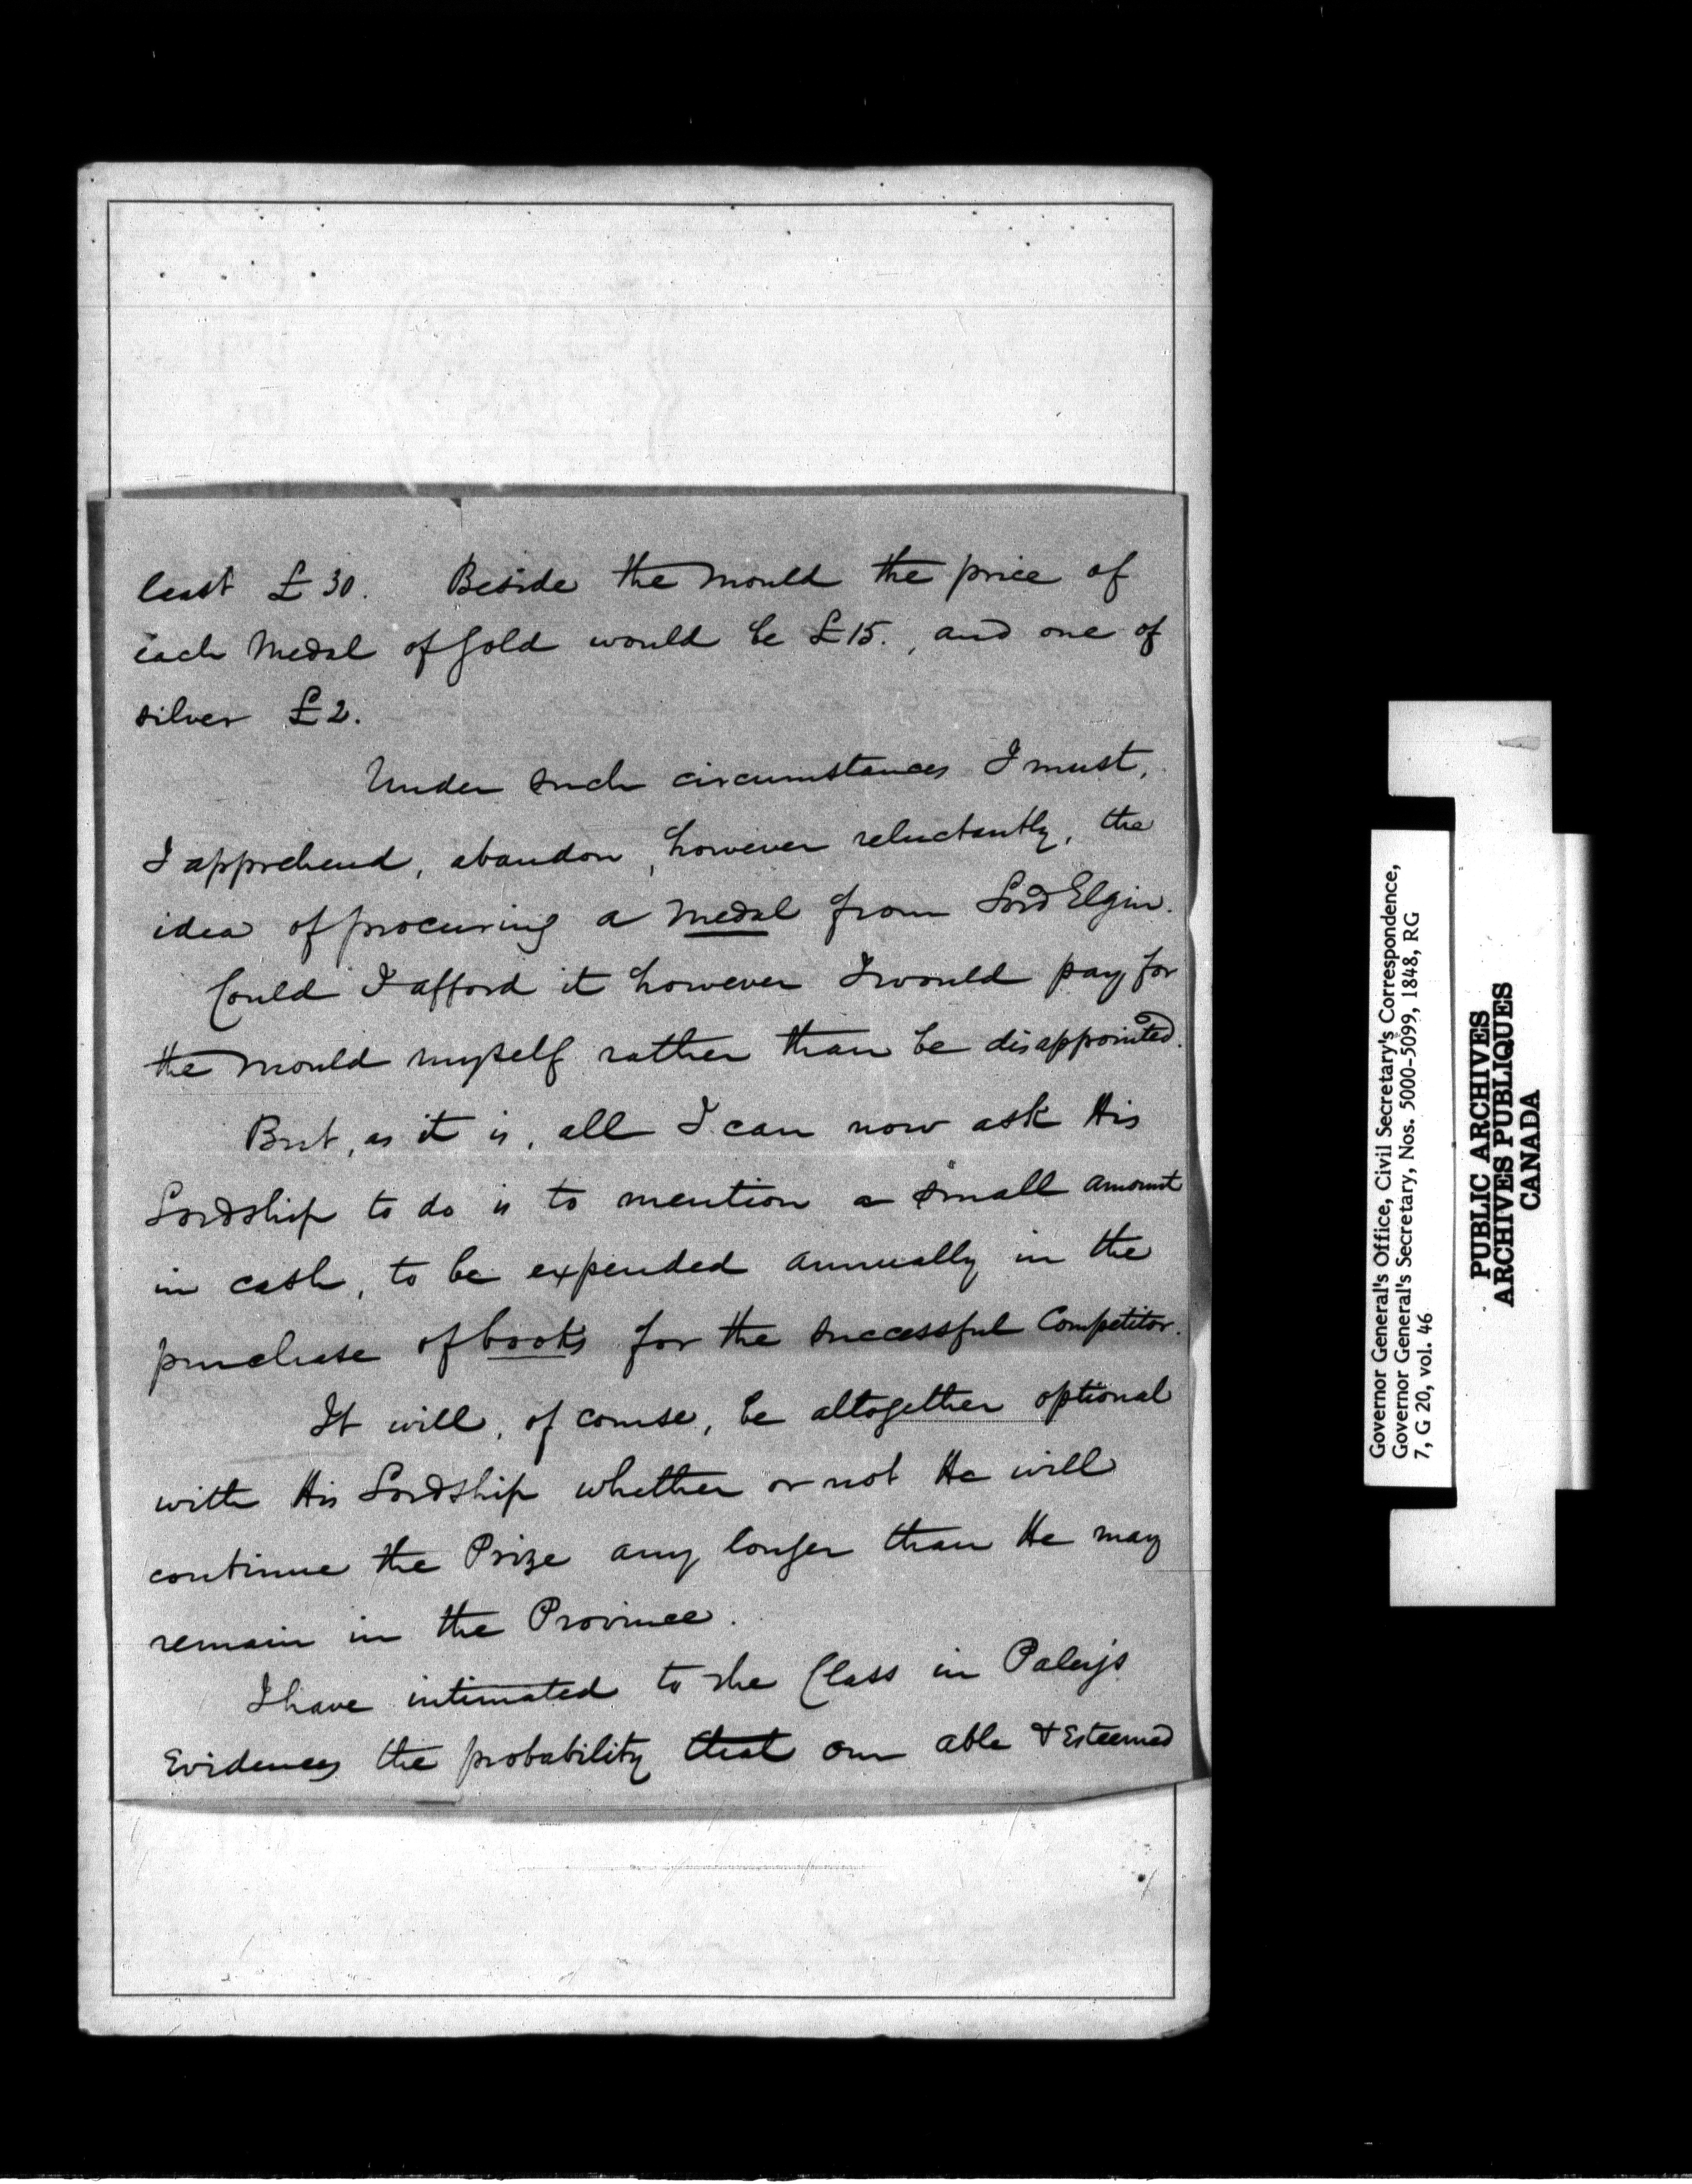 least £30. Beside the Mould the price of
each Medal of Gold would be £15., and one of
silver £2.
Under such circumstances I must,
I apprehend, abandon, however reluctantly, the
idea of procuring a Medal from Lord Elgin.
Could I afford it however I would pay for
the Mould myself rather than be disappointed.
But, as it is, all I can now ask His
Lordship to do is to mention a small amount
in cash, to be expended annually in the
purchase of books for the successful Competitor.
It will, of course, be altogether optional
with His Lordship whether or not He will
continue the Prize any longer than He may
remain in the Province.
I have intimated to the Class in Paley's
Evidences the probability that our able & Esteemed
Governor General's Office, Civil Secretary's Correspondence,
Governor General's Secretary, Nos. 5000-5099, 1848, RG
7, G 20, vol. 46
PUBLIC ARCHIVES
ARCHIVES PUBLIQUES
CANADA